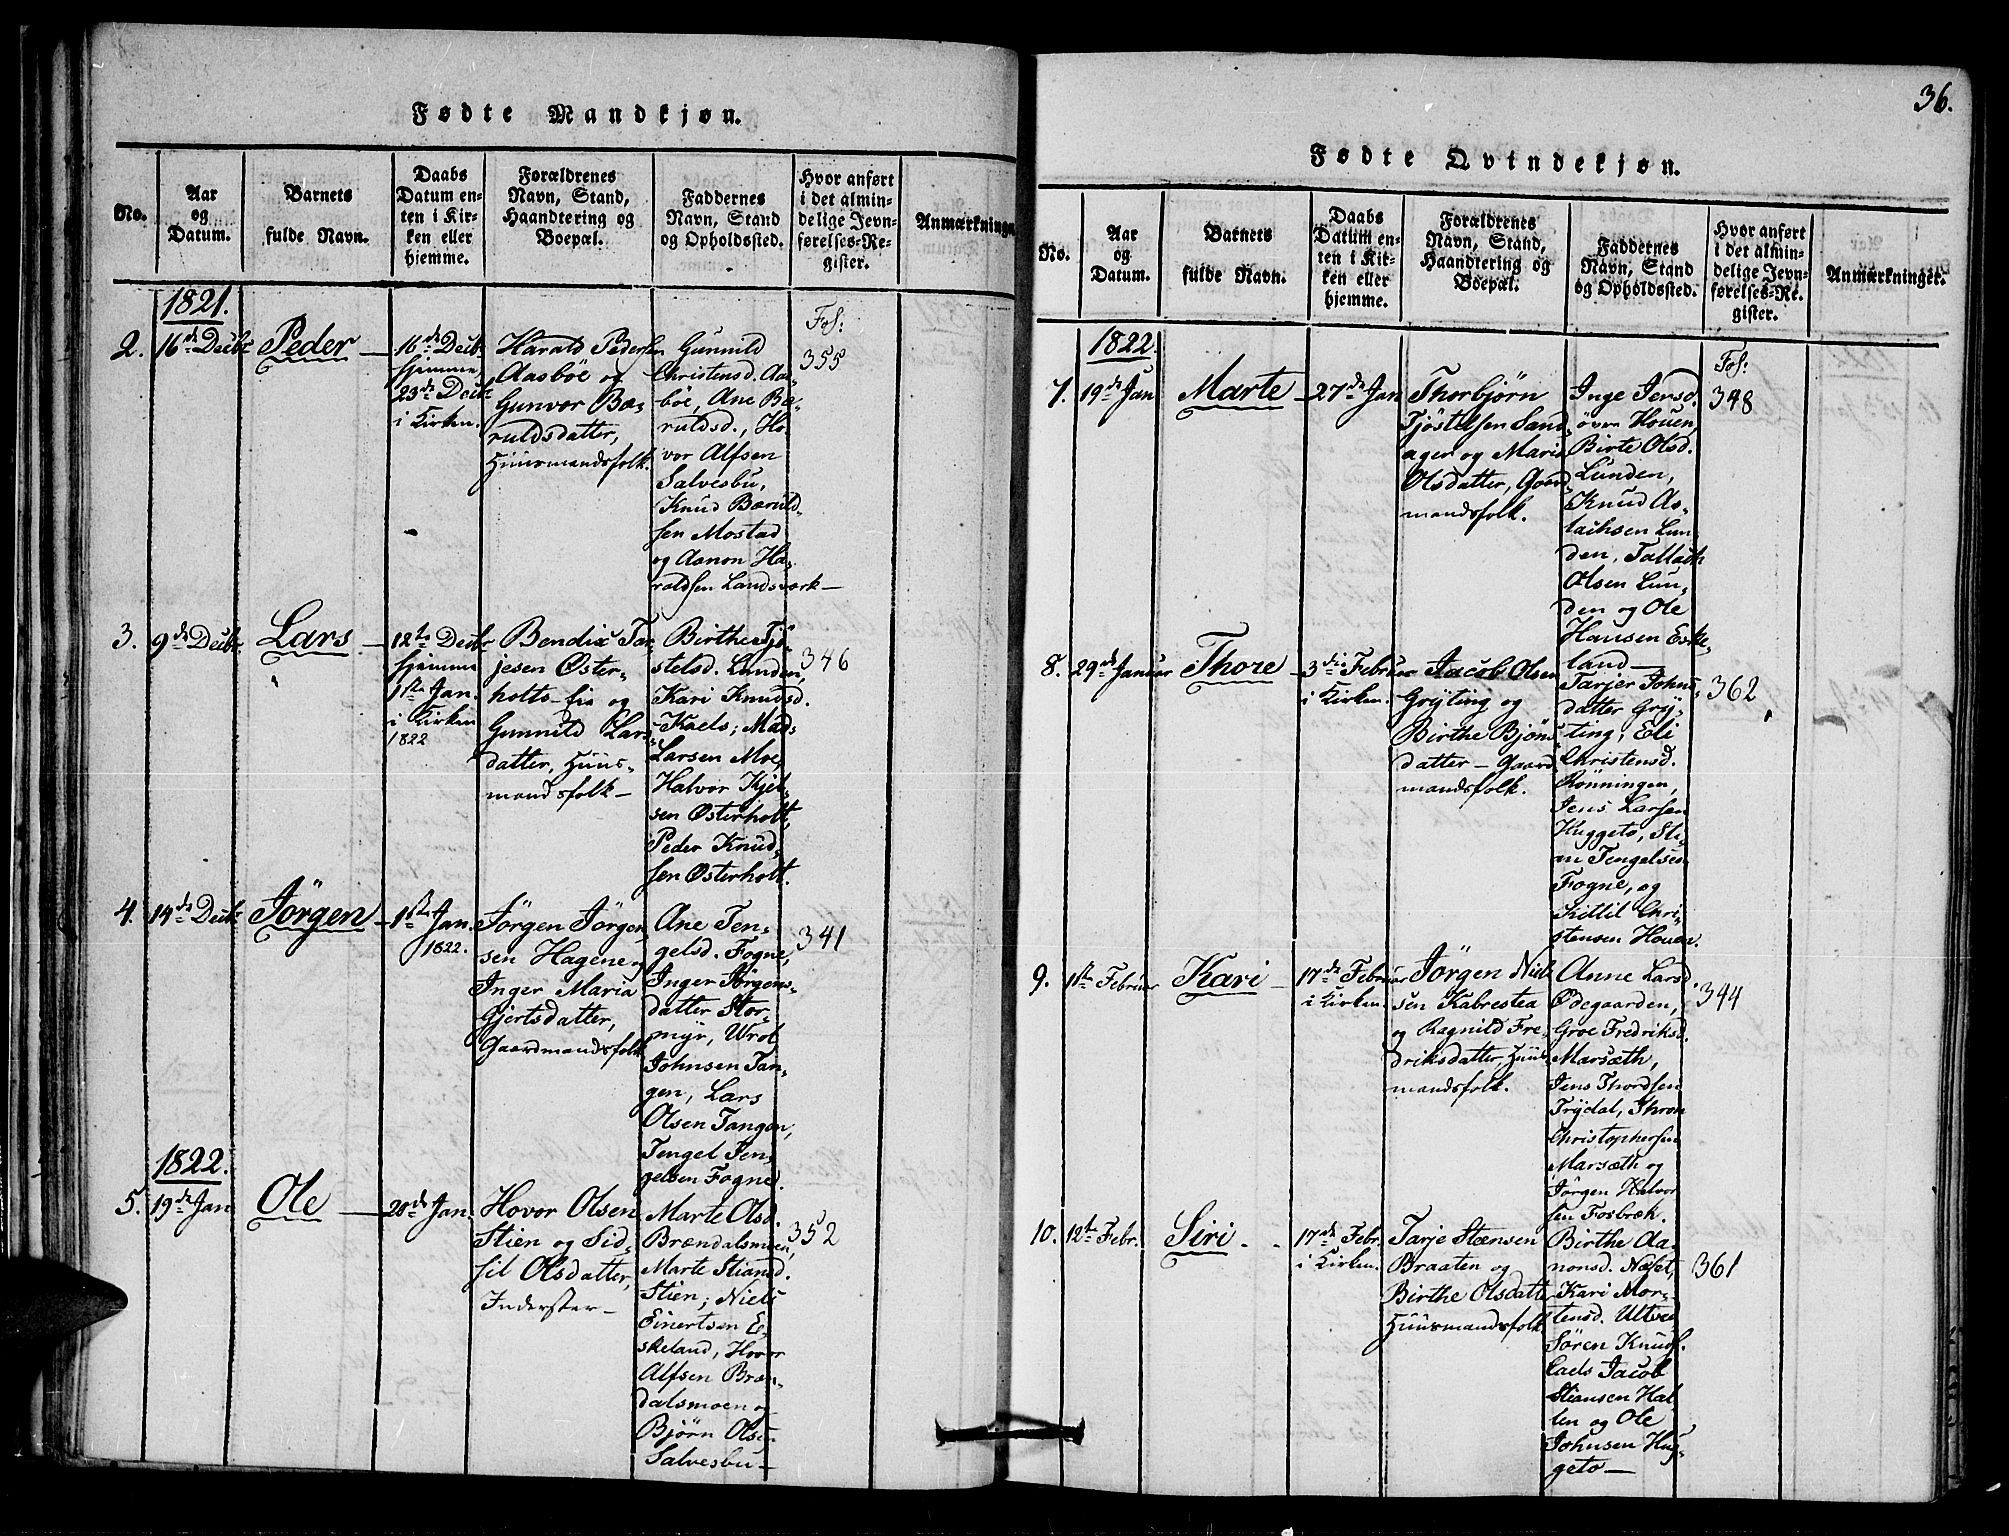 Fødte Mandkjøn.
No.
Aar
og
Datum.
Barnets
fulde Navn.
Daabs
Datum en-
ten i Kir-
ken eller
hjemme.
Forældrenes
Navn, Stand,
Haandtering og
Boepæl.
Faddernes
Navn, Stand
og Opholdssted.
Hvor anført
i det almin-
delige Jevn-
førelses-Re-
gister.
Anmærkninger
1821.
Fol:
2.
16de Decbr
Peder
16de Decbr
hjemme,
23de Decbr
i Kirken.
Harald Pedersen
Aasböe og
Gunvor Bæ-
ruldsdatter,
Huusmandsfolk.
Gunnild
Christensd. Aas-
böe, Ane Bæ-
ruldsd., Ho-
vor Alfsen
Salvesbu,
Knud Bæruld-
sen Mostad
og Aanon Ha-
raldsen Landsværk—
355
3.
9de Decbr
Lars
12te Decbr
hjemme
1ste Jan.
i Kirken
1822
Bendix Tar-
jesen Øster-
holts-eie og
Gunnild Lars-
datter, Huus-
mandsfolk—
Birthe Tjö-
stelsd. Lunden,
Kari Knudsd.
Kaels; Mads
Larsen Moe,
Halvor Kjel-
sen Østerholt,
Peder Knud-
sen Østerholt.
346
4.
14de Decbr
Jörgen
1ste Jan.
1822.
Jörgen Jörgen-
sen Hagene og
Inger Maria
Gjertsdatter,
Gaardmandsfolk
Ane Ten-
gelsd. Fogne,
Inger Jörgens-
datter Stor-
myr, Wrol
Johnsen Tan-
gen, Lars
Olsen Tangen,
Tengel Ten-
gelsen Fogne.
341
1822.
5.
19de Jan
Ole
20de Jan.
Hovor Olsen
Stien og Sid-
sil Olsdatter,
Inderster—
Marte Olsd.
Brændalsmoen,
Marte Stiansd.
Stien; Niels
Einertsen Es-
skeland, Hovor
Alfsen Bræn-
dalsmoen og
Bjørn Olsen
Salvesbu—
352
36.
Fødte Qvindekjøn.
No.
Aar
og
Datum.
Barnets
fulde Navn.
Daabs
Datum en-
ten i Kir-
ken eller
hjemme.
Forældrenes
Navn, Stand,
Haandtering og
Boepæl.
Faddernes
Navn, Stand
og Opholdssted.
Hvor anført
i det almin-
delige Jevn-
førelses-Re-
gister.
Anmærkninger.
1822.
Fol:
7.
19de Jan
Marte
27de Jan
Thorbjörn
Tjöstelsen Sand-
ager og Maria
Olsdatter, Gaard-
mandsfolk.
Inge Jersd.
övre Houen,
Birte Olsd.
Lunden,
Knud As-
lachsen Lun-
den, Tallach
Olsen Lun-
den og Ole
Hansen Eske-
land—
348
8.
29de Januar
Thore
3die Februar
i Kirken.
Jacob Olsen
Gryting og
Birthe Bjöns-
datter — Gaard-
mandsfolk.
Tarjer Johns-
datter Gry-
ting, Eli
Christensd.
Rönningen,
Jens Larsen
Huggeto, Sti-
an Tengelsen
Fogne, og
Kittil Chri-
stensen Houen.
362
9.
1ste Februar
Kari
17de Februar
i Kirken.
Jörgen Niel-
sen Kabrestea
og Ragnild Fre-
driksdatter, Huus-
mandsfolk.
Anne Larsd
Ödegaarden,
Groe Fredriksd.
Marsæth,
Jens Thordsen
Trydal, Thron
Christophersen
Marsæth og
Jörgen Halvor-
sen Fosbræk.
344
10.
12te Febr.
Siri
17de Febr.
i Kirken.
Tarje Stensen
Braaten og
Birthe Olsdatter
Huusmandsfolk
Birthe Aa-
nonsd. Næset,
Kari Mor-
tensd. Utveen
Sören Knuds.
Eads Jacob
Stiansen Hal-
len og Ole
Johnsen Hug-
geto—
361